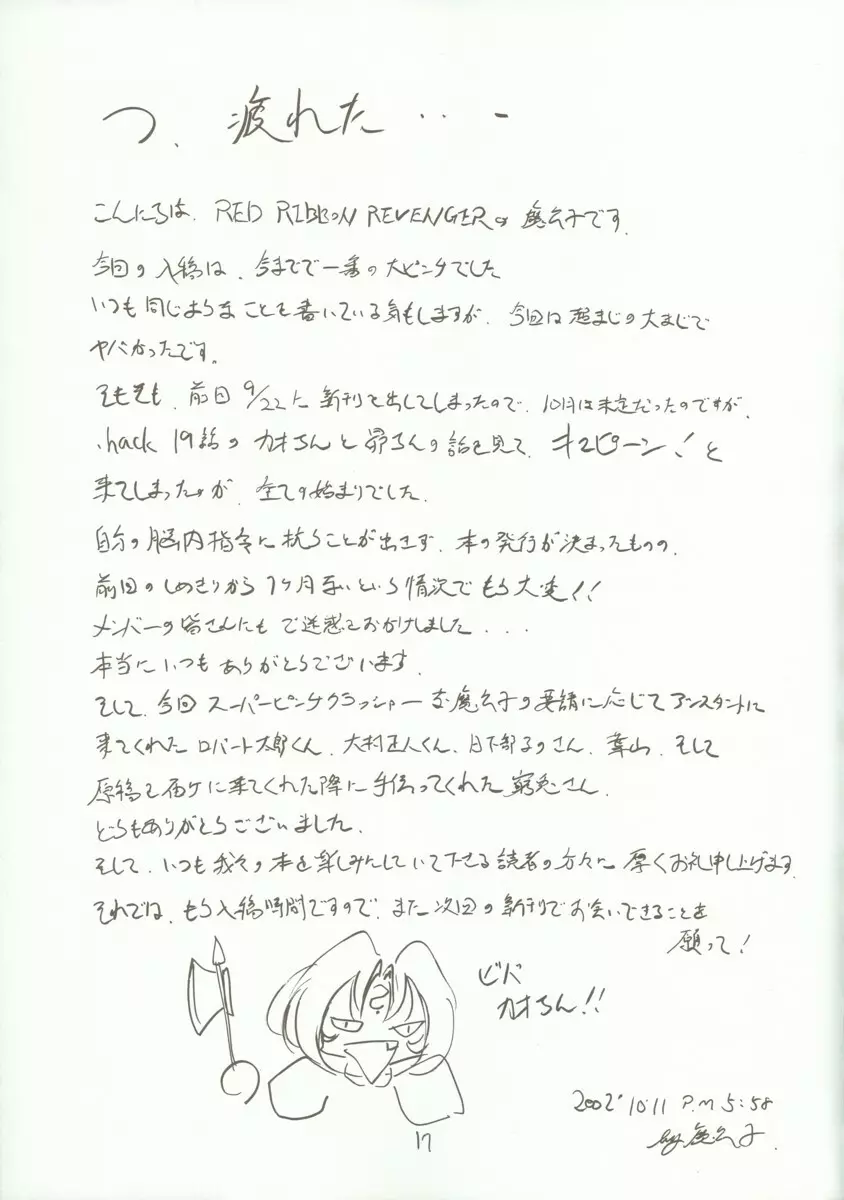 つ、疲れた・・・ー
こんにちは、RED RIBBON REVENGERの魔公子です。
今回の入稿は、今までで一番の大ピンチでした
いつも同じようなことを書いている気もしますが、今回は超まじの大まじで
ヤバかったです。
そもそも、前回9/22に新刊を出してしまったので、10月は未定だったのですが、
.hack 19話のカオちんと昴ちんの話を見て、キュピーン！と
来てしまったのが、全ての始まりでした。
自分の脳内指令に抗うことが出きず、本の発行が決まったものの、
前回のしめきりから1ヶ月無いという情況でもう大変！！
メンバーの皆さんにもご迷惑をおかけしました・・・
本当にいつもありがとうございます。
そして、今回スーパーピンチクラッシャーな魔公子の要請に応じてアシスタントに
来てくれた ロバート太郎くん、大村正人くん、日下部さん、葉山、そして
原稿を届けに来てくれた際に手伝ってくれた窮兎さん。
どうもありがとうございました。
そして、いつも我々の本を楽しみにしていて下さる読者の方々に厚くお礼申し上げます。
それでは、もう入稿時間ですので、また次回の新刊でお会いできることを
願って！
ビバ
カオちん！！
2002' 10.11 P.M 5:58
by 魔公子.
17